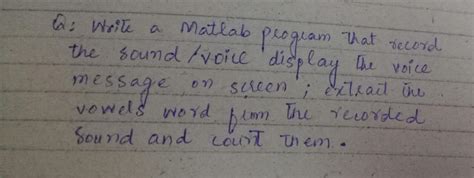 Q: Write a Matlab program that record
the sound/voice display the voice
message on screen; extract the
vowels word from the recorded
sound and count them.